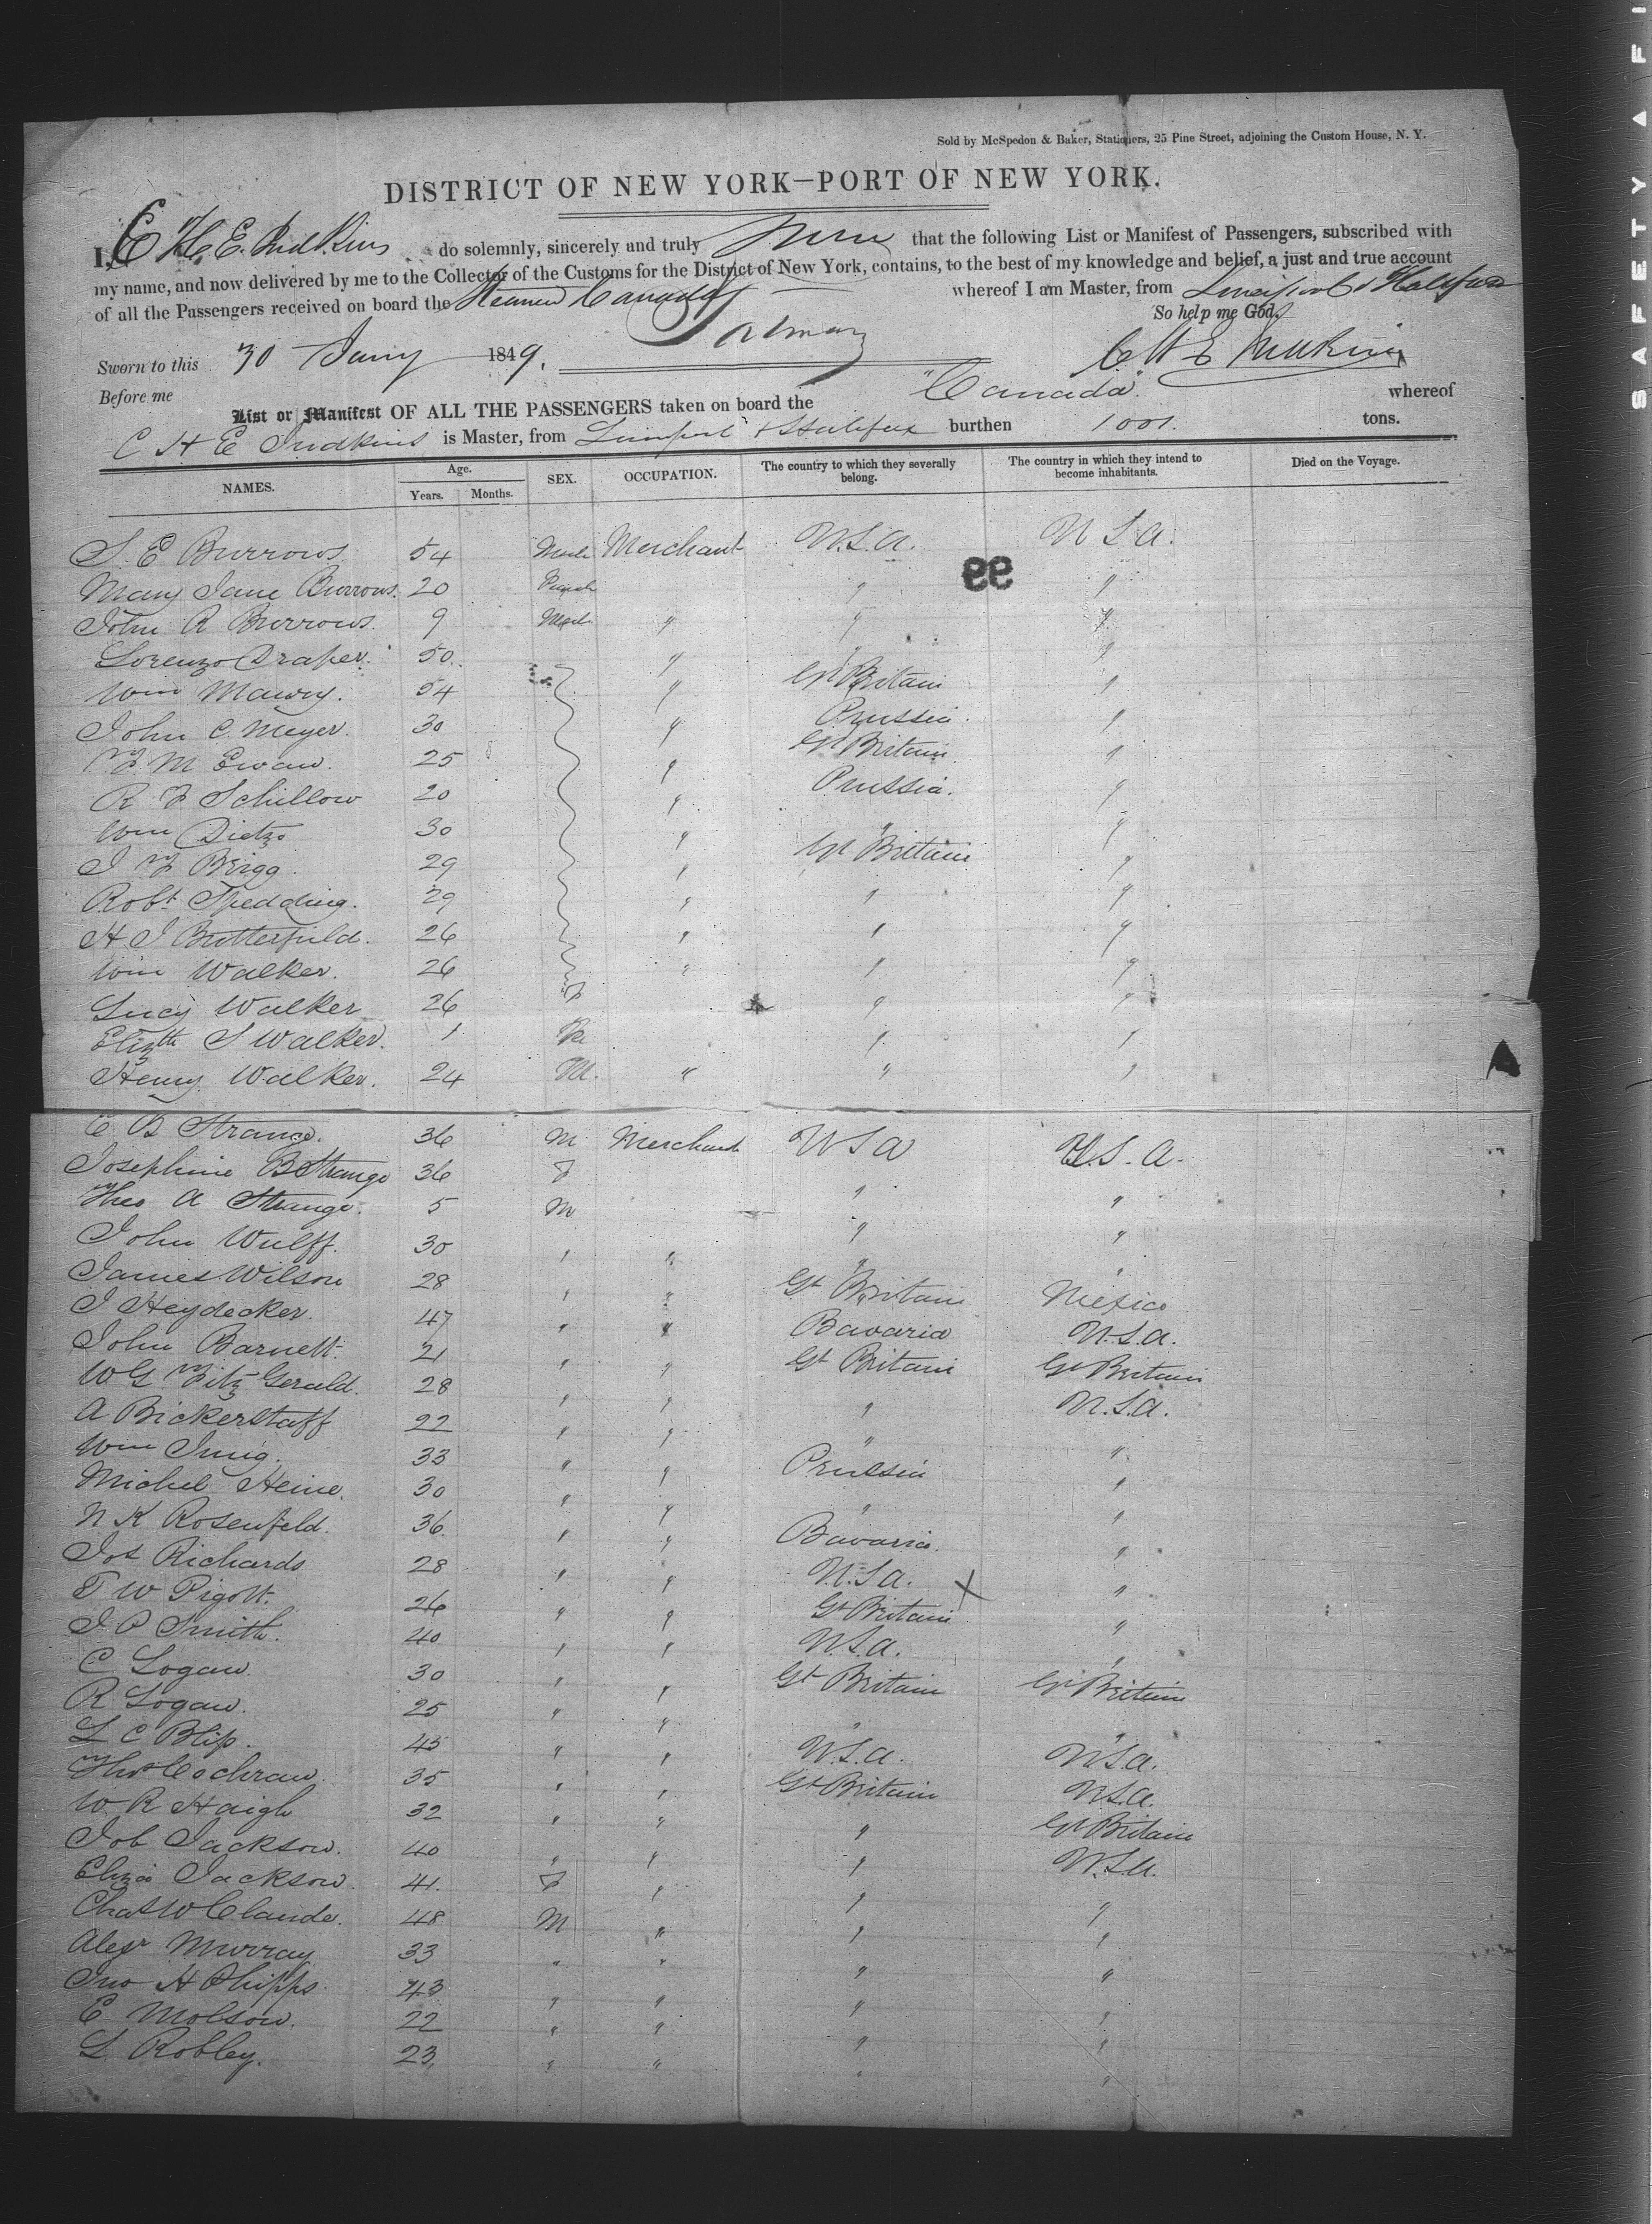 Sold by McSpedon & Baker, Stationers, 25 Pine Street, adjoining the Custom House, N. Y.
DISTRICT OF NEW YORK—PORT OF NEW YORK.
I, C H E Judkins do solemnly, sincerely and truly that the following List or Manifest of Passengers, subscribed with
my name, and now delivered by me to the Collector of the Customs for the District of New York, contains, to the best of my knowledge and belief, a just and true account
of all the Passengers received on board the Steamer Canada whereof I am Master, from Liverpool & Halifax
So help me God.
Sworn to this 30 Jany 1849. C H E Judkins
Before me
List or Manifest OF ALL THE PASSENGERS taken on board the "Canada" whereof
C H E Judkins is Master, from Liverpool & Halifax burthen 1001. tons.
NAMES. Age. Years. Months. SEX. OCCUPATION. The country to which they severally belong. The country in which they intend to become inhabitants. Died on the Voyage.
S. E Burrows 54 Male Merchant U.S.A. U S A.
99
Mary Jane Burrows. 20 Female " "
John R Burrows. 9 Male " " "
Lorenzo Draper. 50 " " "
Wm Maury. 54 " Gt Britain "
John C. Meyer. 30 " Prussia. "
25 " Gt Britain "
R F Schillow 20 " Prussia. "
Wm Dietz 30 " " "
J F Brigg. 29 " Gt Britain "
Robt Spedding. 29 " " "
H J Butterfield. 26 " " "
Wm Walker. 26 " " "
Lucy Walker 26 F " "
Elizth S Walker. 1 " "
Henry Walker. 24 M. " " "
E B Strange. 36 M Merchant U S A U.S.A.
Josephine B Strange 36 F " "
Theo A Strange. 5 M " "
John Wulff. 30 " " " "
James Wilson 28 " " Gt Britain Mexico
J Heydecker. 47 " " Bavaria U.S.A.
John Barnett. 21 " " Gt Britain Gt Britain
W G Fitz Gerald. 28 " " " U.S.A.
A Bickerstaff 22 " " " "
Wm 33 " " Prussia "
Michel Heine. 30 " " " "
N K Rosenfeld. 36. " " Bavaria. "
Jos Richards 28 " " U.S.A. X "
T W Pigott. 26 " " Gt Britain "
J P Smith. 40 " " U.S.A. "
C Logan. 30 " " Gt Britain Gt Britain
R Logan. 25 " " " "
L C 43 " " U.S.A. U.S.A.
Thos Cochran. 35 " " Gt Britain U.S.A.
W R Haigh 32 " " " Gt Britain
Job Jackson. 40 " " " U.S.A.
Eliza Jackson. 41. F " " "
Chas W Claude. 48 M " " "
Alexr Murray 33 " " " "
Jno H Phipps. 43 " " " "
E Molson. 22 " " " "
L Robley. 23. " " " "
SAFETY